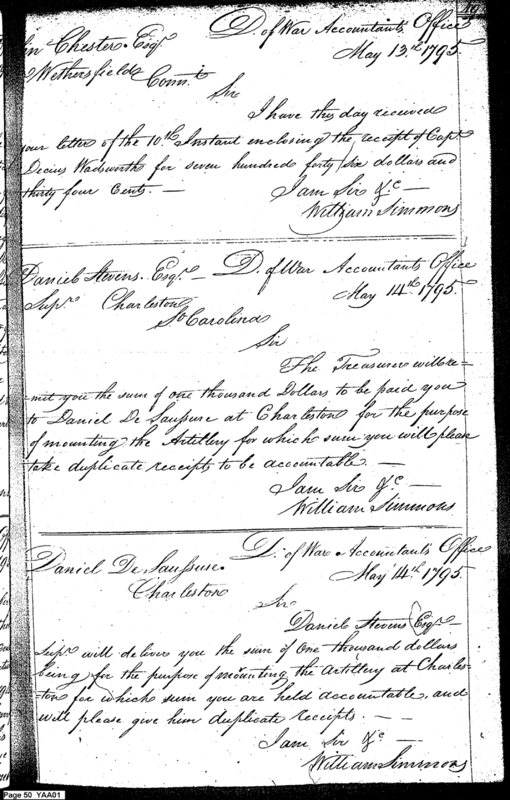 D. of War Accountants Office
May 13.th 1795
Chester. Esq.r
Wethersfield Conn.t
Sir
I have this day received
your letter of the 10.th Instant enclosing the receipt of Cap.t
Decius Wadsworth for seven hundred forty six dollars and
thirty four Cents. —
I am Sir &.c —
William Simmons
Daniel Stevens. Esq.r — D. of War Accountants Office
Sup.r Charleston May 14.th 1795.
So Carolina
Sir
The Treasurer will re-
-mit you the sum of one thousand Dollars to be paid you
to Daniel De Saussure at Charleston for the purpose
of mounting the Artillery for which sum you will please
take duplicate receipts to be accountable. —
I am Sir &.c —
William Simmons
D. of War Accountants Office
Daniel De Saussure. May 14.th 1795.
Charleston
Sir
Daniel Stevens Esq.r —
Sup.r will deliver you the sum of One thousand dollars
being for the purpose of mounting the Artillery at Charles-
-ton for which sum you are held accountable, and
will please give him duplicate receipts. — —
I am Sir &.c —
William Simmons
Page 50 YAA01